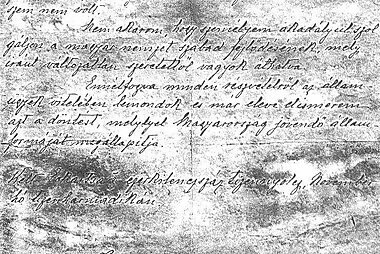 szem nem volt.
Nem akarom, hogy személyem akadályul szol
gáljon a magyar nemzet szabad fejlődésének, mely
iránt változatlan szeretettől vagyok áthatva.
Ennélfogva minden részvételről az állam
ügyek vitelében lemondok és már eleve elismerem
azt a döntést, mely Magyarország jövendő állam
formáját megállapítja.
Kelt ezerkilencszáz tizennyolcz, November
hó tizenharmadikán